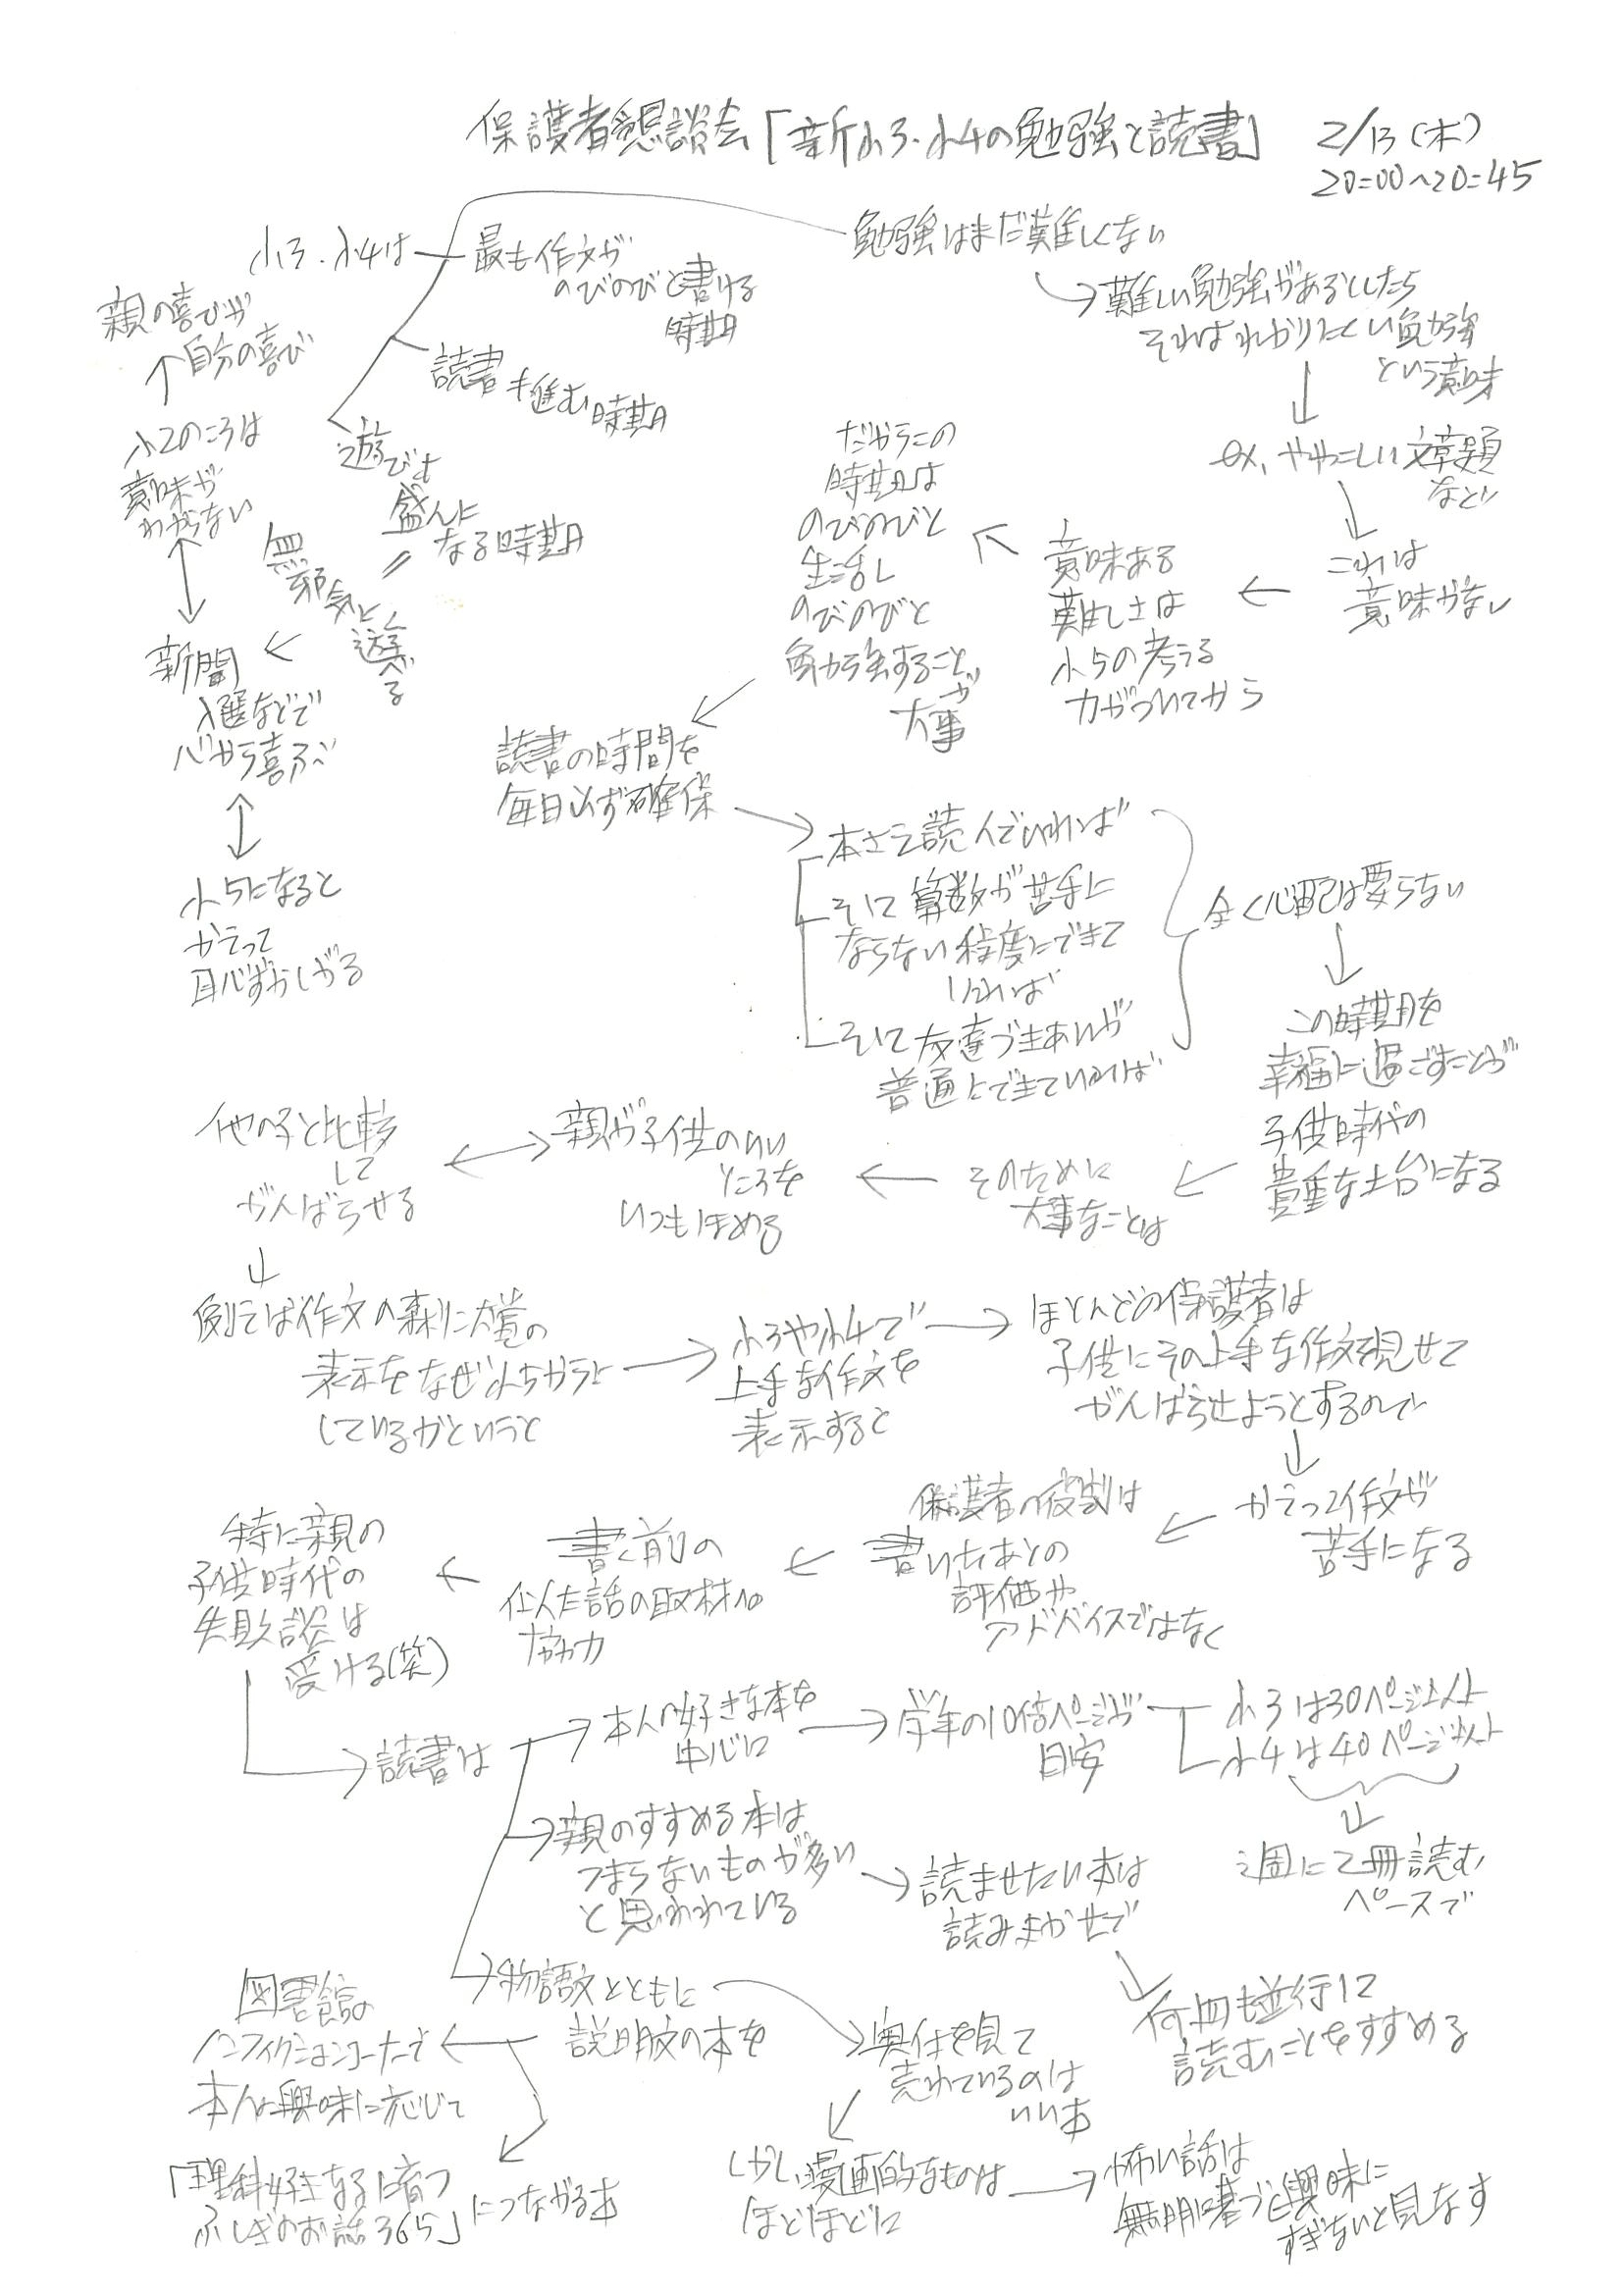 保護者懇談会「新小3・小4の勉強と読書」
2/13(木)
20:00~20:45
小3・小4は
最も作文が
のびのびと書ける
時期
読書も進む時期
遊びも
盛んに
なる時期
=
無邪気に遊べる
新聞
入選などで
心から喜ぶ
小2のころは
意味が
わからない
親の喜びが
自分の喜び
小5になると
かえって
恥ずかしがる
勉強はまだ難しくない
難しい勉強があるとしたら
それはわかりにくい勉強
という意味
ex. ややこしい文章題
など
これは
意味がない
意味ある
難しさは
小5の考える
力がついてから
だからこの
時期は
のびのびと
生活し
のびのびと
勉強することが
大事
読書の時間を
毎日必ず確保
本さえ読んでいれば
そして算数が苦手に
ならない程度にできて
いれば
そして友達づきあいが
普通にできていれば
全く心配は要らない
この時期を
幸福に過ごすことが
子供時代の
貴重な土台になる
そのために
大事なことは
親が子供のいい
ところを
いつもほめる
他の子と比較
して
がんばらせる
例えば作文の森に
表示をなぜ小5からに
しているかというと
小3や小4で
上手な作文を
表示すると
ほとんどの保護者は
子供にその上手な作文を見せて
がんばらせようとするので
かえって作文が
苦手になる
保護者の役割は
書いたあとの
評価や
アドバイスではなく
書く前の
似た話の取材への
協力
特に親の
子供時代の
失敗談は
受ける(笑)
読書は
本人の好きな本を
中心に
学年の10倍ページが
目安
小3は30ページ以上
小4は40ページ以上
週に2冊読む
ペースで
親のすすめる本は
つまらないものが多い
と思われている
読ませたい本は
読みきかせで
何冊も並行して
読むことをすすめる
物語文とともに
説明文の本を
図書館の
ノンフィクションコーナーで
本人の興味に応じて
「理科好きな子に育つ
ふしぎのお話365」
につながる本
奥付を見て
売れているのは
いい本
しかし漫画的なものは
ほどほどに
怖い話は
無明に基づく興味に
すぎないと見なす